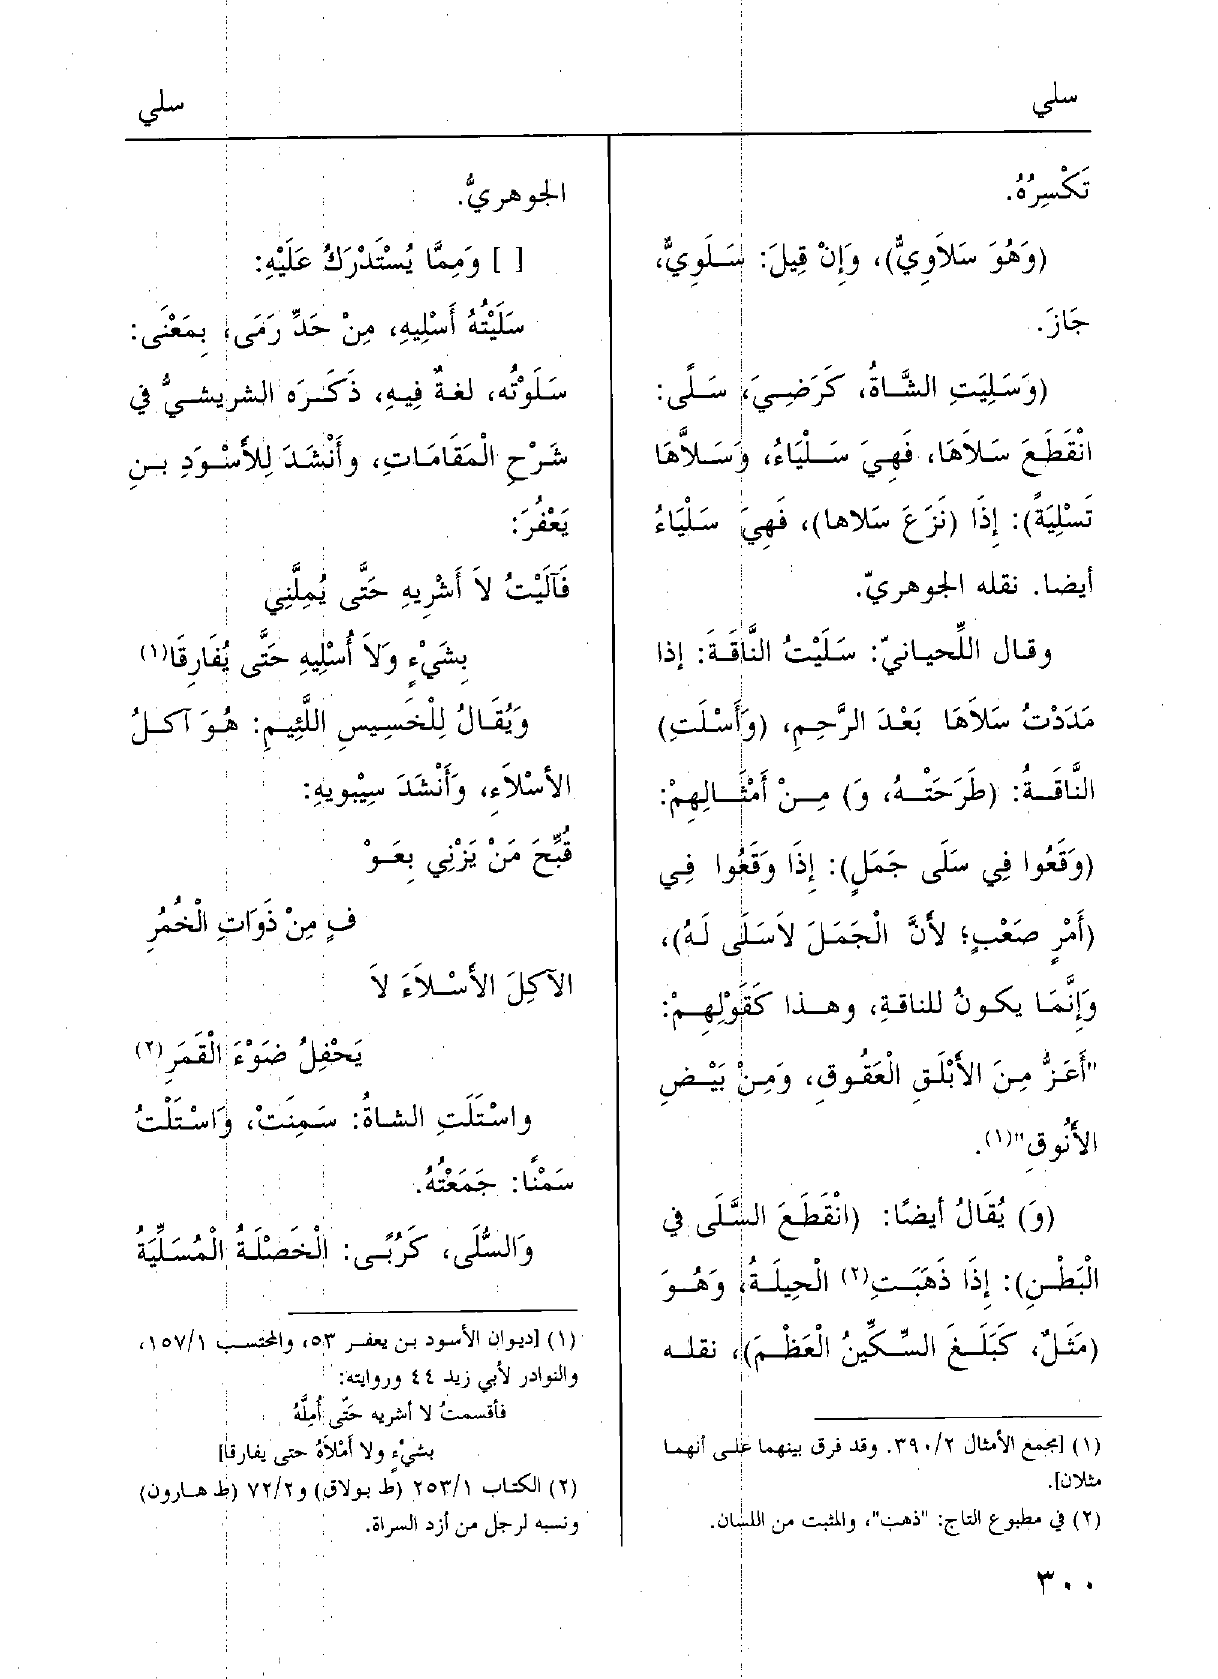 سلي
سلي
تَكْسِرُهُ.
(وَهُوَ سَلاَوِيٌّ)، وَإِنْ قِيلَ: سَلَوِيٌّ،
جَازَ.
(وَسَلِيَتِ الشَّاةُ، كَرَضِيَ، سَلًى:
انْقَطَعَ سَلاَهَا، فَهِيَ سَلْيَاءُ، وَسَلاَّهَا
تَسْلِيَةً): إِذَا (نَزَعَ سَلاها)، فَهِيَ سَلْيَاءُ
أيضا. نقله الجوهريّ.
وقال اللِّحيانيّ: سَلَيْتُ النَّاقَةَ: إذا
مَدَدْتُ سَلاَهَا بَعْدَ الرَّحِمِ، (وَأَسْلَتِ)
النَّاقَةُ: (طَرَحَتْهُ، وَ) مِنْ أَمْثَالِهِمْ:
(وَقَعُوا فِي سَلَى جَمَلٍ): إِذَا وَقَعُوا فِي
(أَمْرٍ صَعْبٍ؛ لأَنَّ الْجَمَلَ لاَسَلَى لَهُ)،
وَإِنَّمَا يكونُ للناقةِ، وهذا كَقَوْلِهِمْ:
"أَعَزُّ مِنَ الأَبْلَقِ الْعَقُوقِ، وَمِنْ بَيْضِ
الأَنُوقِ"(١).
(وَ) يُقَالُ أيضًا: (انْقَطَعَ السَّلَى في
الْبَطْنِ): إِذَا ذَهَبَتِ(٢) الْحِيلَةُ، وَهُوَ
(مَثَلٌ، كَبَلَغَ السِّكِّينُ الْعَظْمَ)، نقله
(١) [مجمع الأمثال ٣٩٠/٢. وقد فرق بينهما على أنهما
مثلان].
(٢) في مطبوع التاج: "ذهب"، والمثبت من اللسان.
الجوهريُّ.
[ ] وَمِمَّا يُسْتَدْرَكُ عَلَيْهِ:
سَلَيْتُهُ أَسْلِيهِ، مِنْ حَدِّ رَمَى، بِمَعْنَى:
سَلَوْتُه، لغةٌ فِيهِ، ذَكَرَه الشريشيُّ في
شَرْحِ الْمَقَامَاتِ، وأَنْشَدَ لِلأَسْوَدِ بنِ
يَعْفُرَ:
فَآلَيْتُ لاَ أَشْرِيهِ حَتَّى يُمِلَّنِي
بِشَيْءٍ وَلاَ أُسْلِيهِ حَتَّى يُفَارِقَا(١)
وَيُقَالُ لِلْخَسِيسِ اللَّئِيمِ: هُوَ آكلُ
الأسْلاَءِ، وَأَنْشَدَ سِيْبويهِ:
قُبِّحَ مَنْ يَزْنِي بِعَوْ
فٍ مِنْ ذَوَاتِ الْخُمُرِ
الآكِلَ الأَسْلاَءَ لاَ
يَحْفِلُ ضَوْءَ الْقَمَرِ(٢)
واسْتَلَتِ الشاةُ: سَمِنَتْ، وَاسْتَلْتُ
سَمْنًا: جَمَعْتُهُ.
وَالسُّلَى، كَرُبًى: الْخَصْلَةُ الْمُسَلِّيَةُ
(١) [ديوان الأسود بن يعفر ٥٣، والمحتسب ١٥٧/١،
والنوادر لأبي زيد ٤٤ وروايته:
فأقسمتُ لا أشريه حَتَّى أُمِلَّهُ
بشيْءٍ ولا أَمْلاَهُ حتى يفارقا]
(٢) الكتاب ٢٥٣/١ (ط بولاق) و٧٢/٢ (ط هارون)
ونسبه لرجل من أزد السراة.
٣٠٠